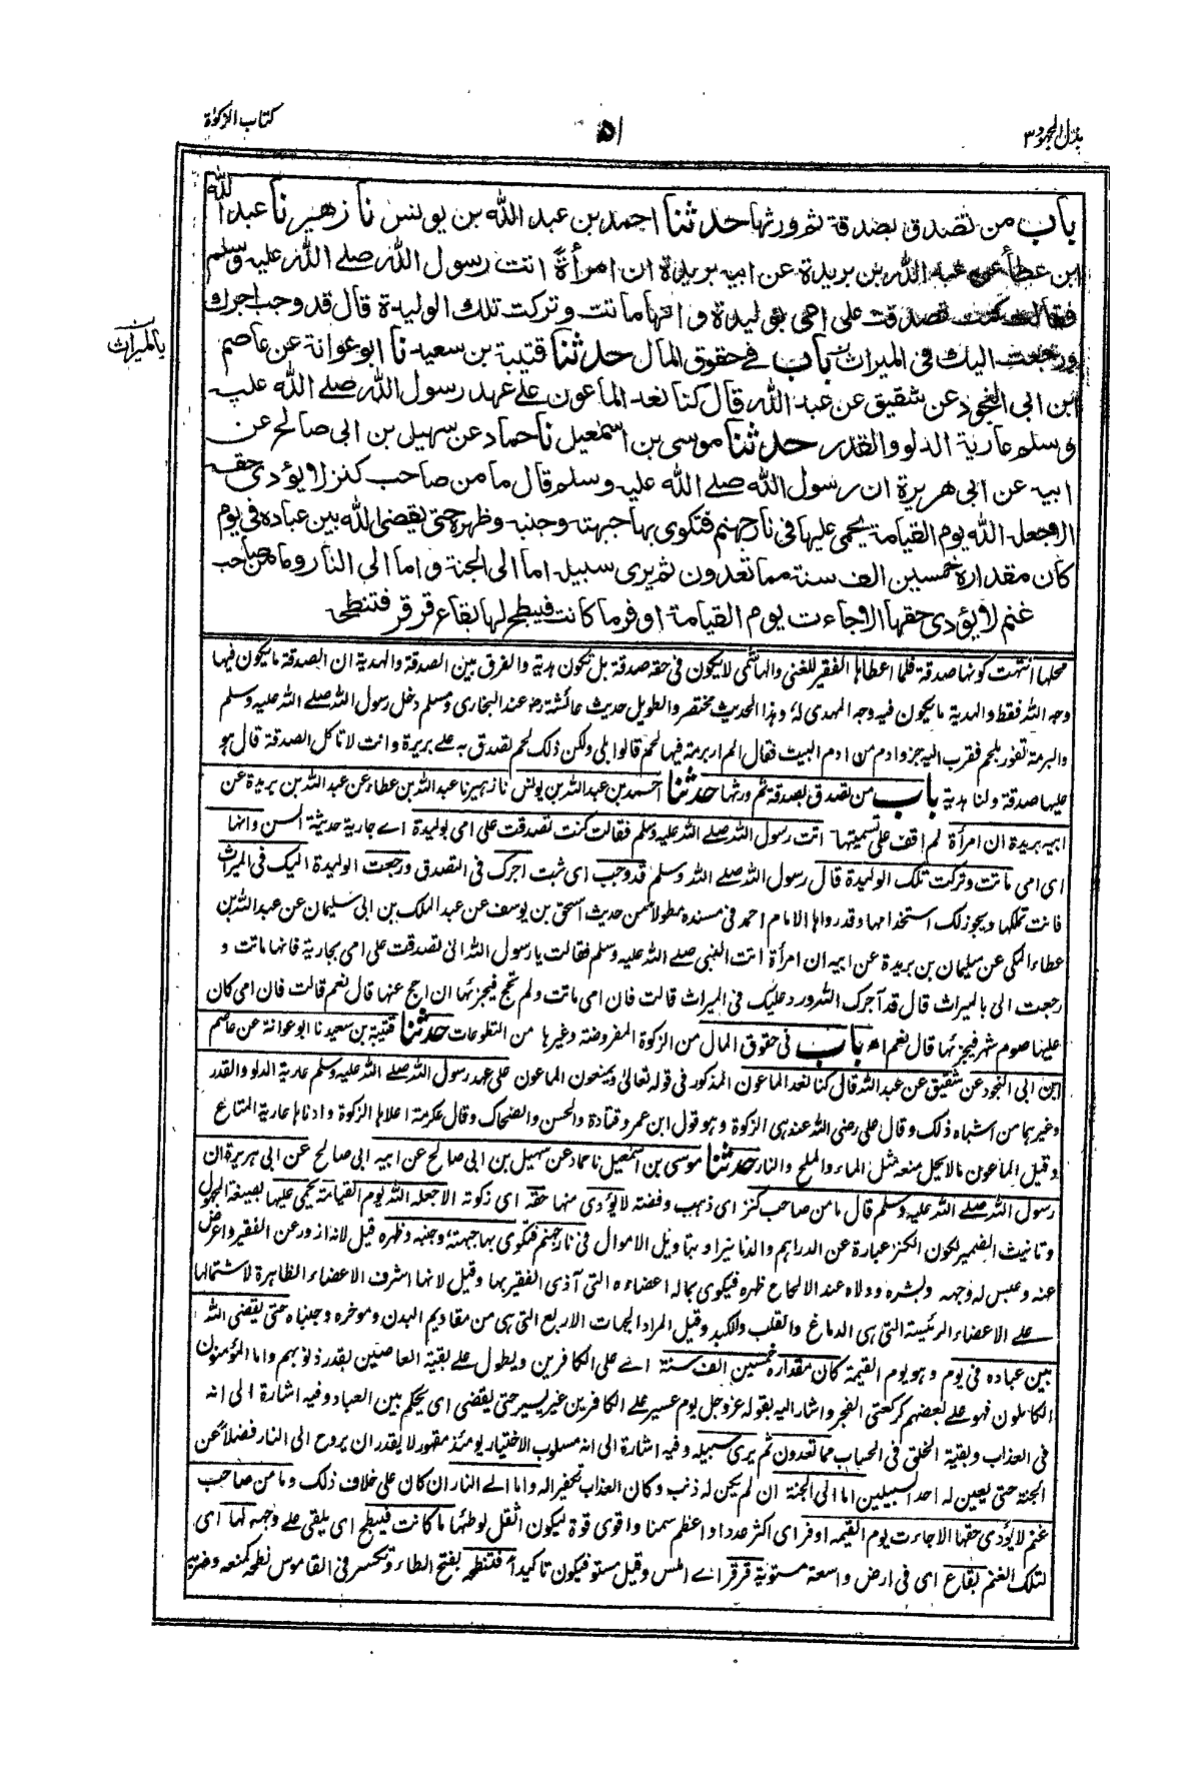 بذل المجهود ٣
٥١
كتاب الزكوة
باب من تصدق بصدقة ثم ورثها حدثنا احمد بن عبد الله بن يونس نا زهير نا عبد الله
ابن عطاء عن عبد الله بن بريدة عن ابيه بريدة ان امرأة اتت رسول الله صلے الله عليه وسلم
فقالت كنت تصدقت على امى بوليدة وانها ماتت وتركت تلك الوليدة قال قد وجب اجرك
ورجعت اليك فى الميراث باب فے حقوق المال حدثنا قتيبة بن سعيد نا ابو عوانة عن عاصم
بالميراث
ابن ابى النجود عن شقيق عن عبد الله قال كنا نعد الماعون علے عهد رسول الله صلے الله عليه
وسلم عارية الدلو والقدر حدثنا موسى بن اسمعيل نا حماد عن سهيل بن ابى صالح عن
ابيه عن ابى هريرة ان رسول الله صلے الله عليه وسلم قال ما من صاحب كنز لا يؤدى حقه
الا جعله الله يوم القيامة يحمى عليها فى نار جهنم فتكوى بها جبهته وجنبه وظهره حتى يقضى الله بين عباده فى يوم
كان مقداره خمسين الف سنة مما تعدون ثم يرى سبيله اما الى الجنة واما الى النار وما من صاحب
غنم لا يؤدى حقها الا جاءت يوم القيامة اوفر ما كانت فيبطح لها بقاع قرقر فتنطحه
محلها انتهت كونها صدقة فلما اعطاها الفقير للغنى والهاشمى لا يكون فى حقه صدقة بل تكون هدية والفرق بين الصدقة والهدية ان الصدقة ما يكون فيها
وجه الله فقط والهدية ما يكون فيه وجه المهدى له وهذا الحديث مختصر والطويل حديث عائشة رضـ عند البخارى ومسلم دخل رسول الله صلے الله عليه وسلم
والبرمة تفور بلحم فقرب اليه خبز وادم من ادم البيت فقال الم ار برمة فيها لحم قالوا بلى ولكن ذلك لحم تصدق به علے بريرة وانت لا تاكل الصدقة قال هو
عليها صدقة ولنا هدية باب من تصدق بصدقة ثم ورثها حدثنا احمد بن عبد الله بن يونس نا زهير نا عبد الله بن عطاء عن عبد الله بن بريدة عن
ابيه بريدة ان امرأة لم اقف على تسميتها اتت رسول الله صلے الله عليه وسلم فقالت كنت تصدقت على امى بوليدة اے جارية حديثة السن وانها
اى امى ماتت وتركت تلك الوليدة قال رسول الله صلے الله وسلم قد وجب اى ثبت اجرك فى التصدق ورجعت الوليدة اليك فى الميراث
فانت تملكها ويجوز لك استخدامها وقد رواها الامام احمد فى مسنده مطولا من حديث اسحق بن يوسف عن عبد الملك بن ابى سليمان عن عبد الله بن
عطاء المكى عن سليمان بن بريدة عن ابيه ان امرأة اتت النبى صلے الله عليه وسلم فقالت يا رسول الله انى تصدقت على امى بجارية فانها ماتت و
رجعت الى بالميراث قال قد آجرك الله ورد عليك فى الميراث قالت فان امى ماتت ولم تحج فيجزئها ان احج عنها قال نعم قالت فان امى كان
عليها صوم شهر فيجزئها قال نعم اه باب فى حقوق المال من الزكوة المفروضة وغيرها من التطوعات حدثنا قتيبة بن سعيد نا ابو عوانة عن عاصم
ابن ابى النجود عن شقيق عن عبد الله قال كنا نعد الماعون المذكور فى قوله تعالى ويمنعون الماعون على عهد رسول الله صلے الله عليه وسلم عارية الدلو والقدر
وغيرهما من اشباه ذلك وقال على رضى الله عنه هى الزكوة وهو قول ابن عمر وقتادة والحسن والضحاك وقال عكرمة اعلاها الزكوة وادناها عارية المتاع
وقيل الماعون ما لا يحل منعه مثل الماء والملح والنار حدثنا موسى بن اسمعيل نا حماد عن سهيل بن ابى صالح عن ابيه ابى صالح عن ابى هريرة ان
رسول الله صلے الله عليه وسلم قال ما من صاحب كنز اى ذهب وفضة لا يؤدى منها حقه اى زكوته الا جعله الله يوم القيامة يحمى عليها بصيغة المجهول
وتانيث الضمير لكون الكنز عبارة عن الدراهم والدنانير او بتاويل الاموال فى نار جهنم فتكوى بها جبهته وجنبه وظهره قيل لانه ازور عن الفقير واعرض
عنه وعبس له وجهه وبشره وولاه عند الالحاح ظهره فيكوى بماله اعضاءه التى آذى الفقير بها وقيل لانها اشرف الاعضاء الظاهرة لاشتمالها
علے الاعضاء الرئيسة التى هى الدماغ والقلب والكبد وقيل المراد الجهات الاربع التى هى من مقاديم البدن وموخره وجنباه حتى يقضى الله
بين عباده فى يوم وهو يوم القيمة كان مقداره خمسين الف سنة اے على الكافرين ويطول علے بقية العاصين بقدر ذنوبهم واما المؤمنون
الكاملون فهو علے بعضهم كركعتى الفجر واشار اليه بقوله عز وجل يوم عسير علے الكافرين غير يسير حتى يقضى اى يحكم بين العباد وفيه اشارة الى انه
فى العذاب وبقية الخلق فى الحساب مما تعدون ثم يرى سبيله وفيه اشارة الى انه مسلوب الاختيار يومئذ مقهور لا يقدر ان يروح الى النار فضلا عن
الجنة حتى يعين له احد السبيلين اما الى الجنة ان لم يكن له ذنب وكان العذاب تكفيرا له واما الے النار ان كان على خلاف ذلك وما من صاحب
غنم لا يؤدى حقها الا جاءت يوم القيمه اوفر اى اكثر عددا واعظم سمنا واقوى قوة ليكون اثقل لوطئها ما كانت فيبطح اى يلقى علے وجهه لها اى
لتلك الغنم بقاع اى فى ارض واسعة مستوية قرقر اے املس وقيل مستو فيكون تاكيدا فتنطحه بفتح الطاء وتكسر فى القاموس نطحه كمنعه وضربه